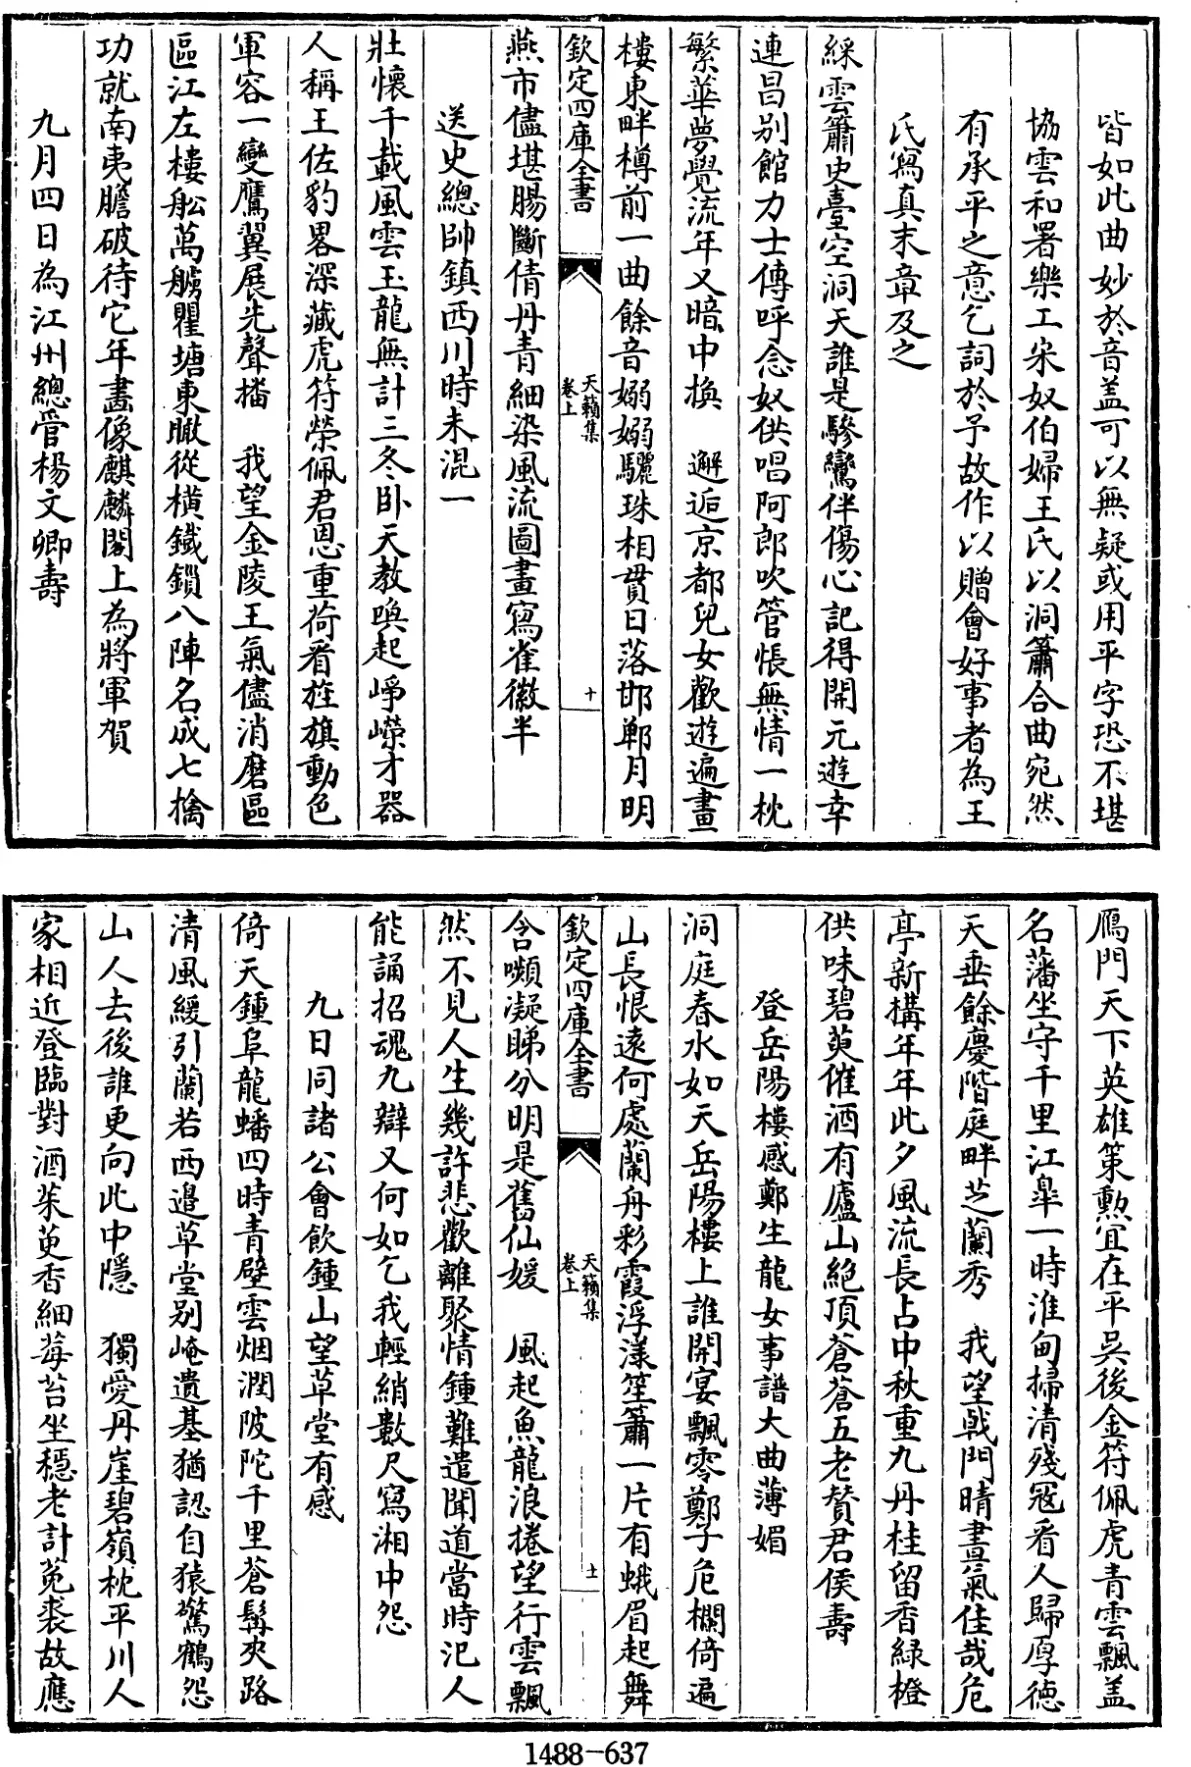 皆如此曲妙於音盖可以無疑或用平字恐不堪
協雲和署樂工宋奴伯婦王氏以洞簫合曲宛然
有承平之意乞詞於予故作以贈會好事者為王
氏寫真末章及之
綵雲簫史臺空洞天誰是驂鸞伴傷心記得開元遊幸
連昌别館力士傳呼念奴供唱阿郎吹管悵無情一枕
繁華夢覺流年又暗中換　邂逅京都兒女歡遊遍畫
樓東畔樽前一曲餘音嫋嫋驪珠相貫日落邯鄲月明
欽定四庫全書　天籟集卷上　十
燕市儘堪腸斷倩丹青細染風流圖畫寫崔徽半
送史總帥鎮西川時未混一
壯懷千載風雲玉龍無計三冬卧天教喚起崢嶸才器
人稱王佐豹畧深藏虎符榮佩君恩重荷看旌旗動色
軍容一變鷹翼展先聲播　我望金陵王氣儘消磨區
區江左樓船萬艣瞿塘東瞰從橫鐵鎖八陣名成七擒
功就南夷膽破待它年畫像麒麟閣上為將軍賀
九月四日為江州總管楊文卿壽
鴈門天下英雄策勲宜在平吳後金符佩虎青雲飄盖
名藩坐守千里江臯一時淮甸掃清殘冦看人歸厚德
天垂餘慶階庭畔芝蘭秀　我望戟門晴晝氣佳哉危
亭新構年年此夕風流長占中秋重九丹桂留香綠橙
供味碧萸催酒有廬山絶頂蒼蒼五老賛君侯壽
登岳陽樓感鄭生龍女事譜大曲薄媚
洞庭春水如天岳陽樓上誰開宴飄零鄭子危欄倚遍
山長恨遠何處蘭舟彩霞浮漾笙簫一片有蛾眉起舞
欽定四庫全書　天籟集卷上　十一
含嚬凝睇分明是舊仙媛　風起魚龍浪捲望行雲飄
然不見人生幾許悲歡離聚情鍾難遣聞道當時汜人
能誦招魂九辯又何如乞我輕綃數尺寫湘中怨
九日同諸公會飲鍾山望草堂有感
倚天鍾阜龍蟠四時青壁雲烟潤陂陀千里蒼髯夾路
清風緩引蘭若西邉草堂别崦遺基猶認自猿驚鶴怨
山人去後誰更向此中隱　獨愛丹崖碧嶺枕平川人
家相近登臨對酒茱萸香細莓苔坐穩老計菟裘故應
1488-637